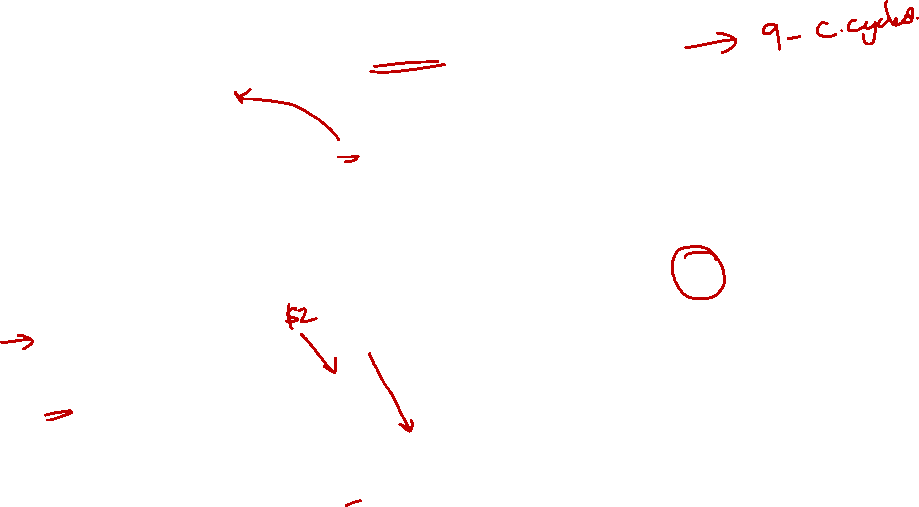 → 9 - c.cycles.
$2